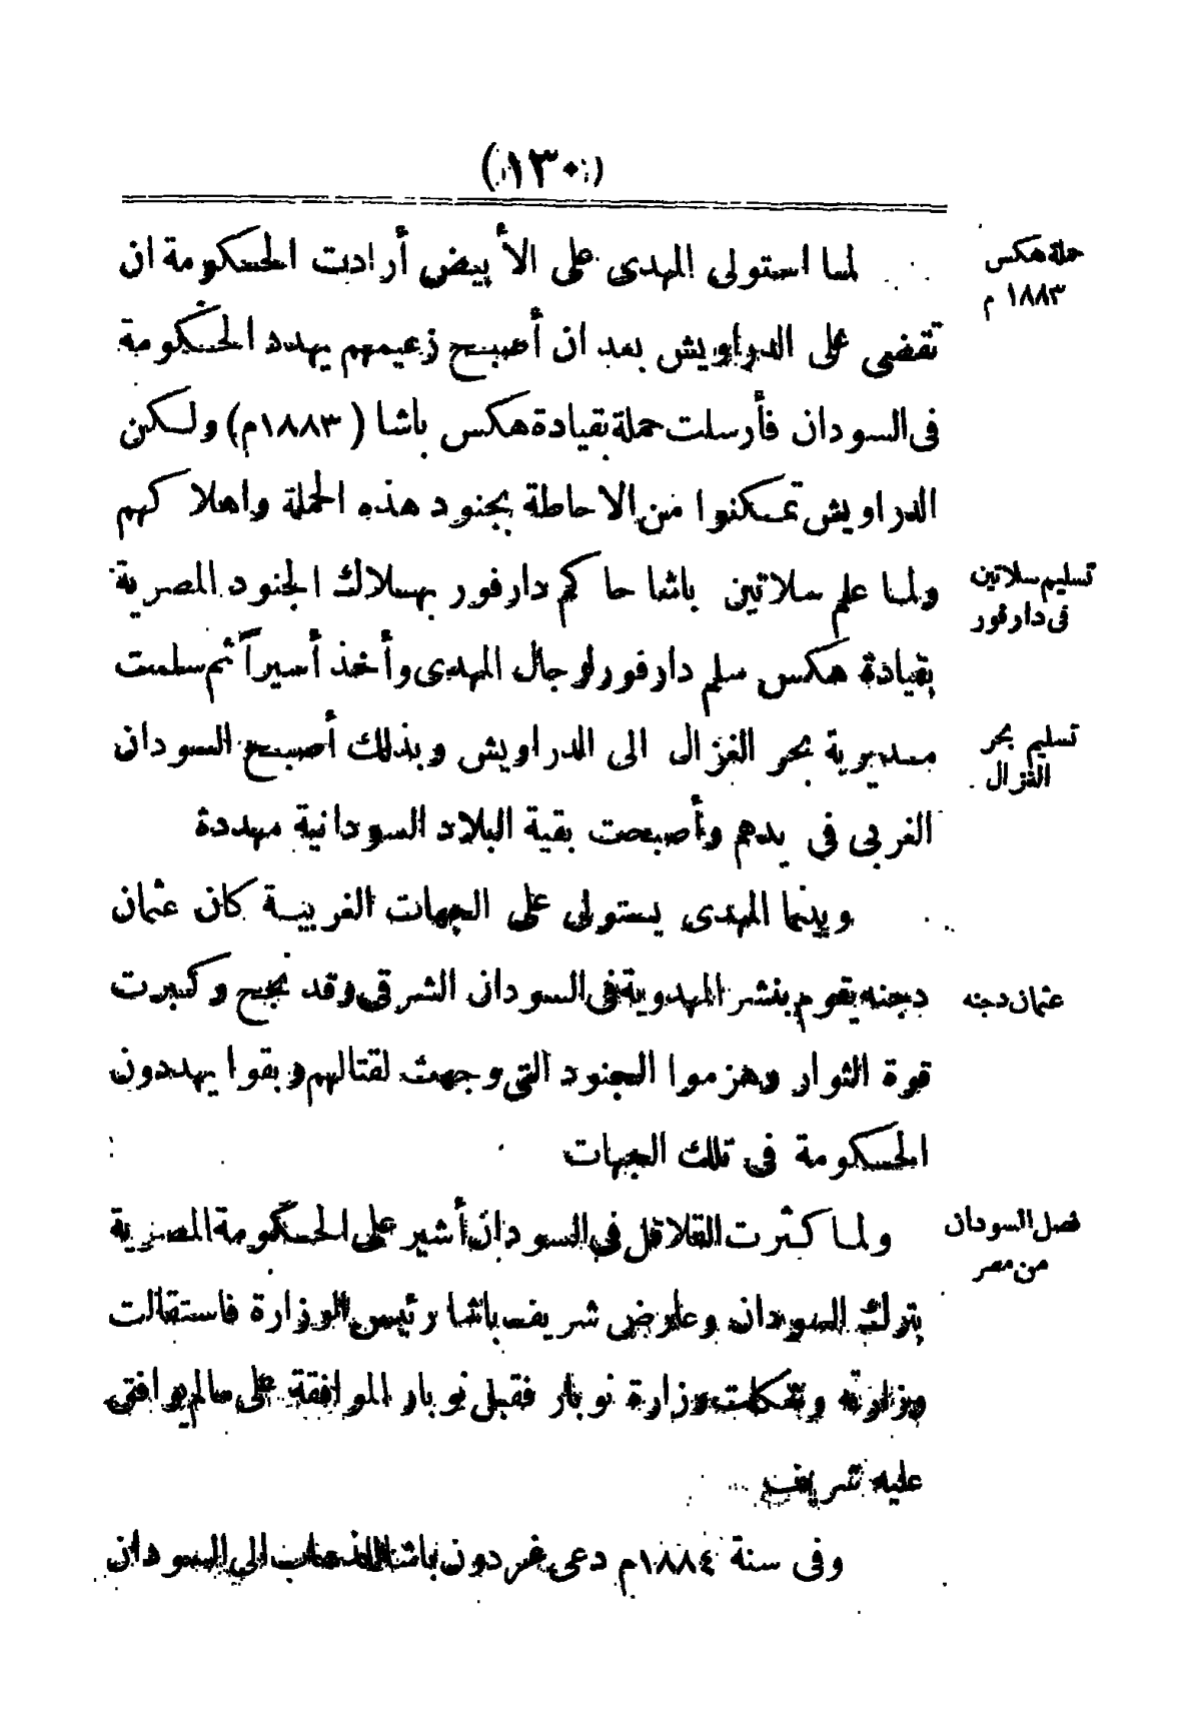 (١٣٠)
حملة هكس
١٨٨٣ م
لما استولى المهدى على الأبيض أرادت الحكومة ان
تقضى على الدراويش بعد ان أصبح زعيمهم يهدد الحكومة
فى السودان فأرسلت حملة بقيادة هكس باشا (١٨٨٣م) ولكن
الدراويش تمكنوا من الاحاطة بجنود هذه الحملة واهلاكهم
تسليم سلاتين
فى دارفور
ولما علم سلاتين باشا حاكم دارفور بهلاك الجنود المصرية
بقيادة هكس سلم دارفور لرجال المهدى وأخذ أسيراً ثم سلمت
تسليم بحر
الغزال
مديرية بحر الغزال الى الدراويش وبذلك أصبح السودان
الغربى فى يدهم وأصبحت بقية البلاد السودانية مهددة
وبينما المهدى يستولى على الجهات الغربية كان عثمان
عثمان دجنه
دجنه يقوم بنشر المهدوية فى السودان الشرقى وقد نجح وكبرت
قوة الثوار وهزموا الجنود التى وجهت لقتالهم وبقوا يهددون
الحكومة فى تلك الجهات
فصل السودان
من مصر
ولما كثرت القلاقل فى السودان أشير على الحكومة المصرية
بترك السودان وعارض شريف باشا رئيس الوزارة فاستقالت
وزارته وتشكلت وزارة نوبار فقبل نوبار الموافقة على مالم يوافق
عليه شريف
وفى سنة ١٨٨٤م دعى غردون باشا للذهاب الى السودان